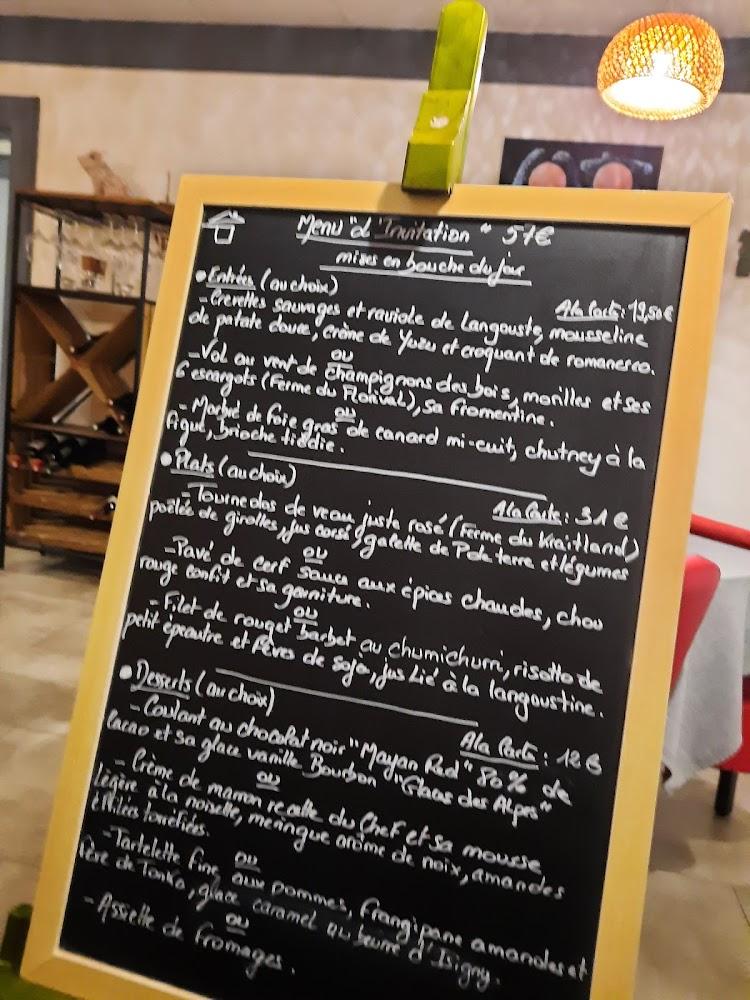 Menu "d'Invitation" 57€
mises en bouche du jour
• Entrées (au choix)
A la Carte : 19,50€
- Crevettes sauvages et raviole de Langouste, mousseline
de patate douce, crème de Yuzu et croquant de romanesco.
ou
- Vol au vent de champignons des bois, morilles et ses
6 escargots (Ferme du Florival), sa fromentine.
ou
- Marbré de foie gras de canard mi-cuit, chutney à la
figue, brioche tiédie.
• Plats (au choix)
A la Carte : 31€
- Tournedos de veau juste rosé (Ferme du Kraitland)
poêlée de girolles, jus corsé, galette de P. de terre et légumes
ou
- Pavé de cerf sauce aux épices chaudes, chou
rouge confit et sa garniture.
ou
- Filet de rouget barbet au chumichurri, risotto de
petit épeautre et fèves de soja, jus lié à la langoustine.
• Desserts (au choix)
A la Carte : 12€
- Coulant au chocolat noir "Mayan Red" 80% de
Cacao et sa glace vanille Bourbon "Glaces des Alpes"
ou
- Crème de marron recette du Chef et sa mousse
légère à la noisette, méringue arôme de noix, amandes
éffilées torréfiées.
ou
- Tartelette fine aux pommes, frangipane amandes et
fève de Tonka, glace caramel au beurre d'Isigny.
ou
- Assiette de fromages.